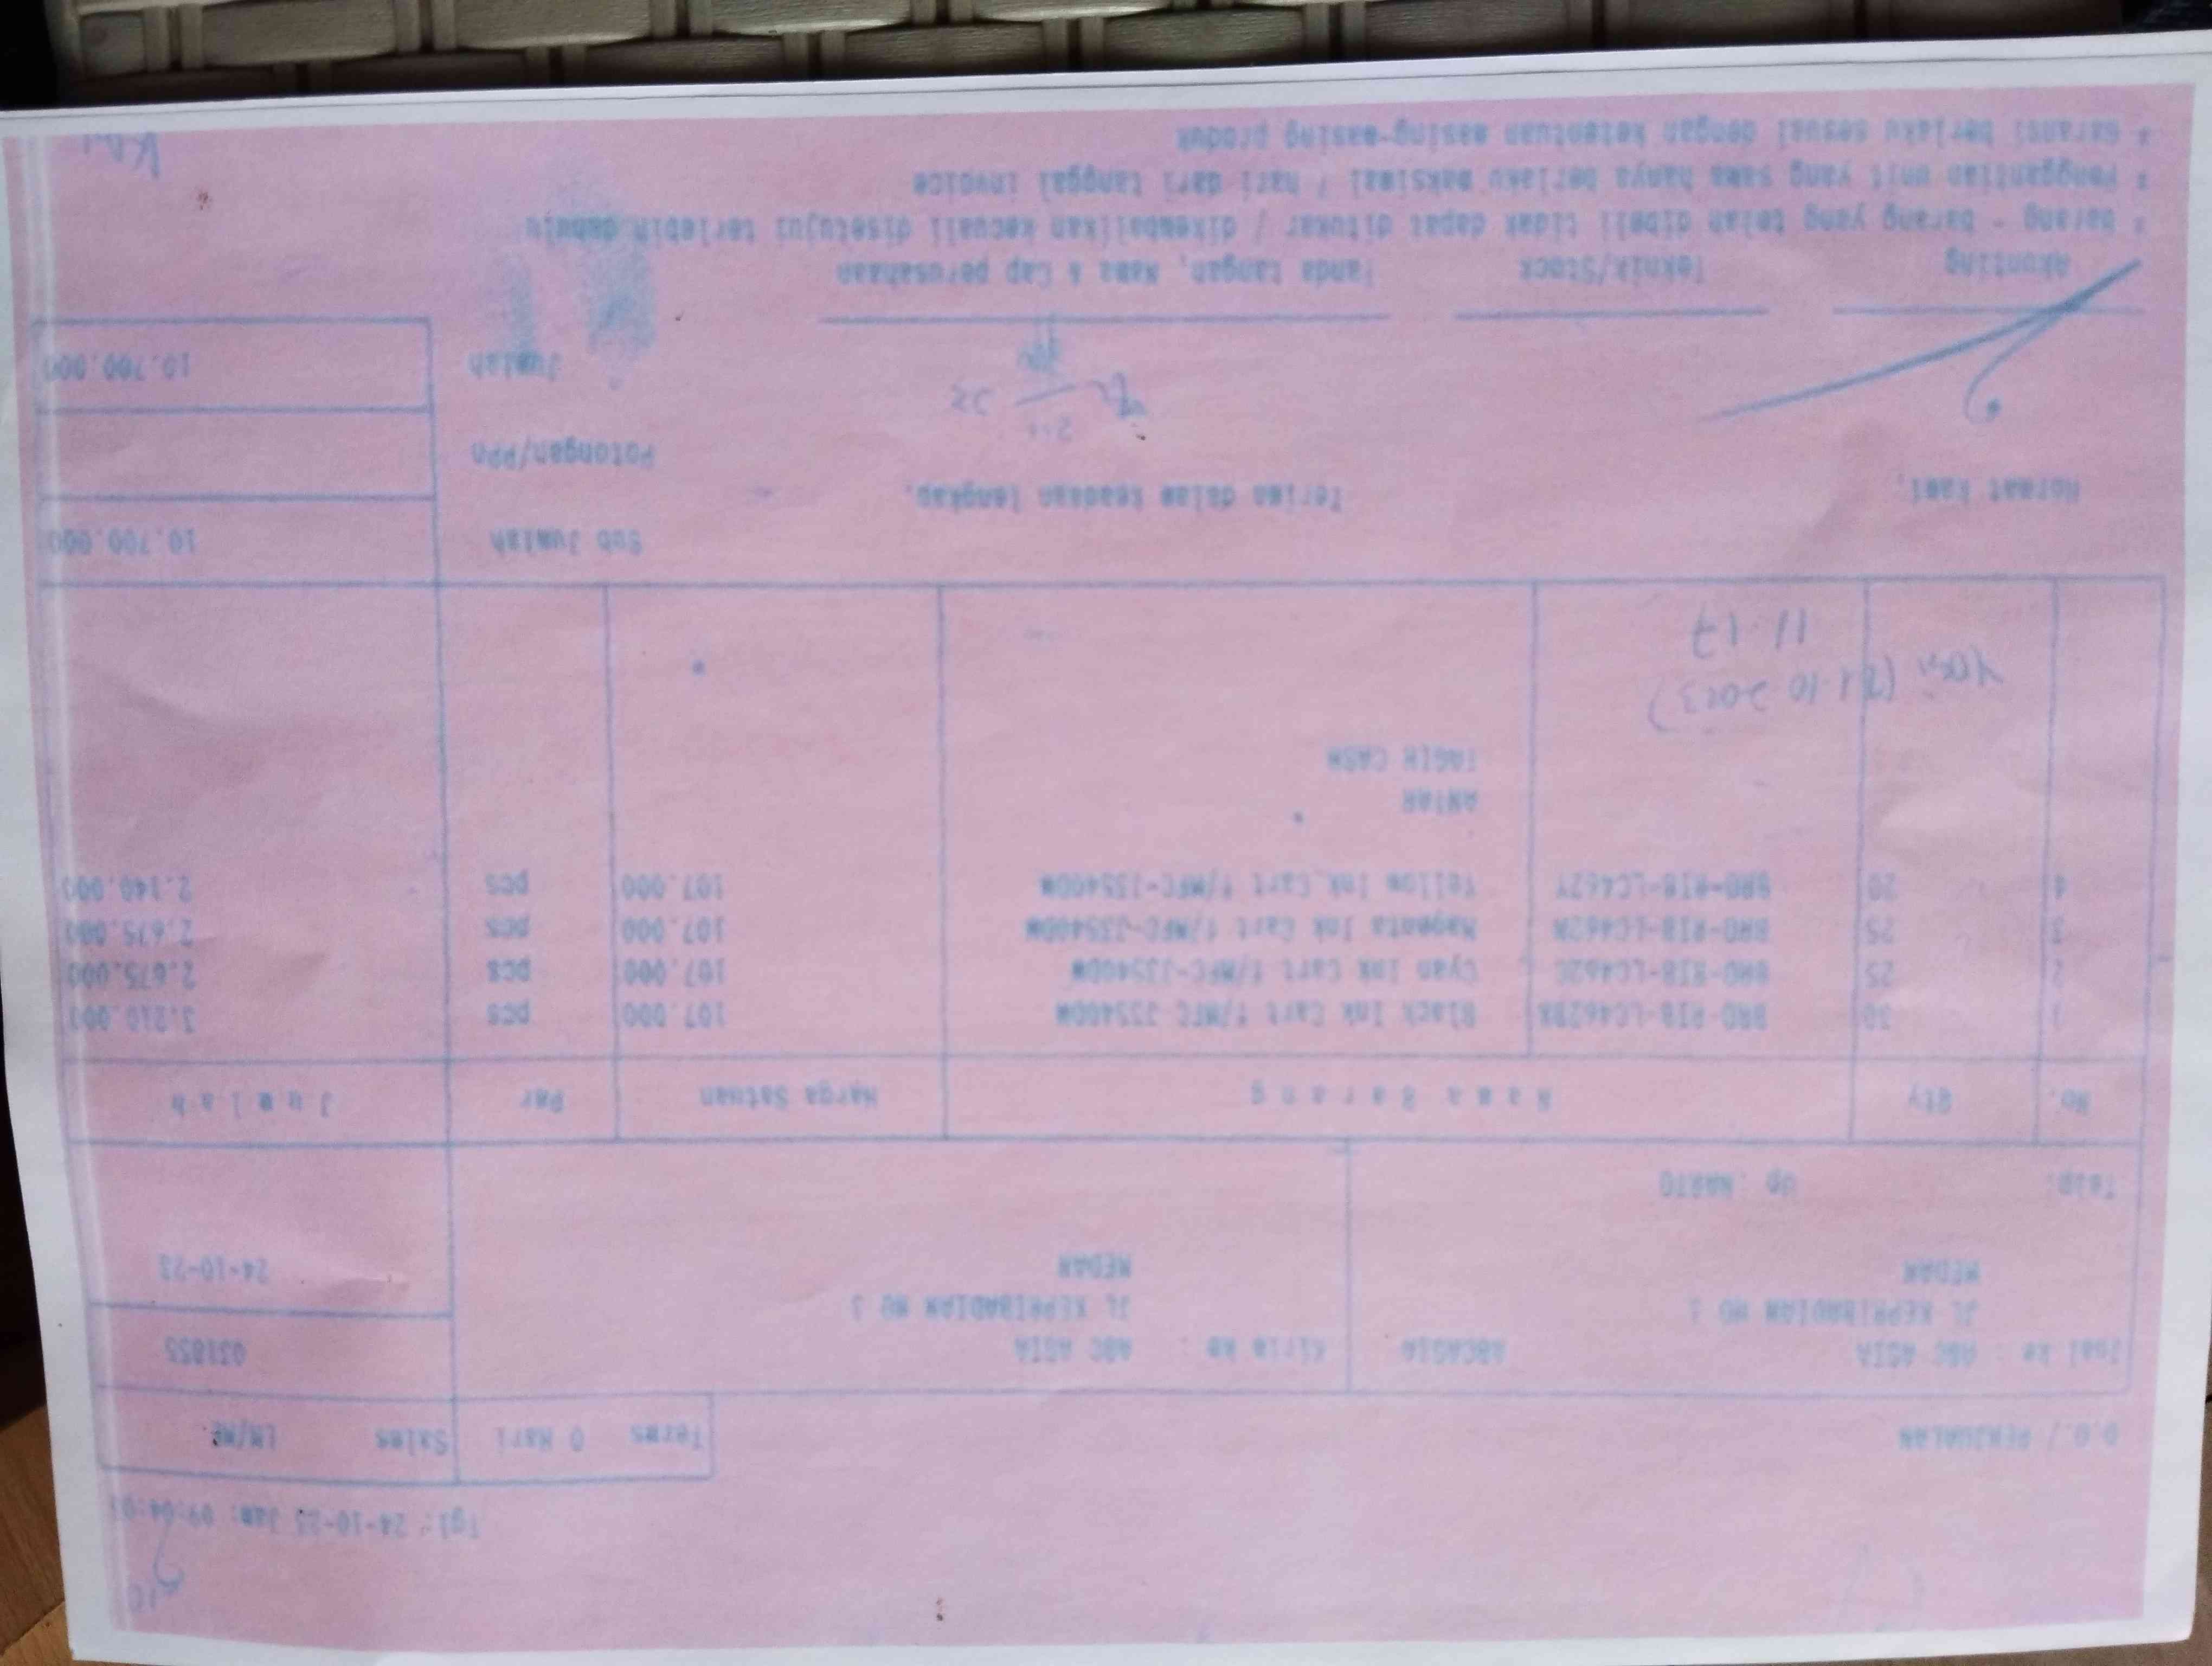 Tgl: 24-10-23 Jam: 09:04:0
D.O./ PENJUALAN
Terms 0 Hari Sales LM/MF
Jual ke : ABC ASIA ABCASIA Kirim ke : ABC ASIA 031855
JL KEPRIBADIAN NO 3 JL KEPRIBADIAN NO 3
MEDAN MEDAN 24-10-23
Telp. Up. NARTO
No. Qty Nama Barang Harga Satuan Per Jumlah
1 30 BRO-RIB-LC462BK Black Ink Cart f/MFC-J3540DW 107.000 pcs 3.210.000
2 25 BRO-RIB-LC462C Cyan Ink Cart f/MFC-J3540DW 107.000 pcs 2.675.000
3 25 BRO-RIB-LC462M Magenta Ink Cart f/MFC-J3540DW 107.000 pcs 2.675.000
4 20 BRO-RIB-LC462Y Yellow Ink Cart f/MFC-J3540DW 107.000 pcs 2.140.000
ANTAR
TAGIH CASH
11.17
Sub Jumlah 10.700.000
Hormat kami, Terima dalam keadaan lengkap,
Potongan/PPn
Jumlah 10.700.000
Akunting Teknik/Stock Tanda tangan, Nama & Cap perusahaan
* Barang - barang yang telah dibeli tidak dapat ditukar / dikembalikan kecuali disetujui terlebih dahulu
* Penggantian unit yang sama hanya berlaku maksimal 7 hari dari tanggal invoice
* Garansi berlaku sesuai dengan ketentuan masing-masing produk